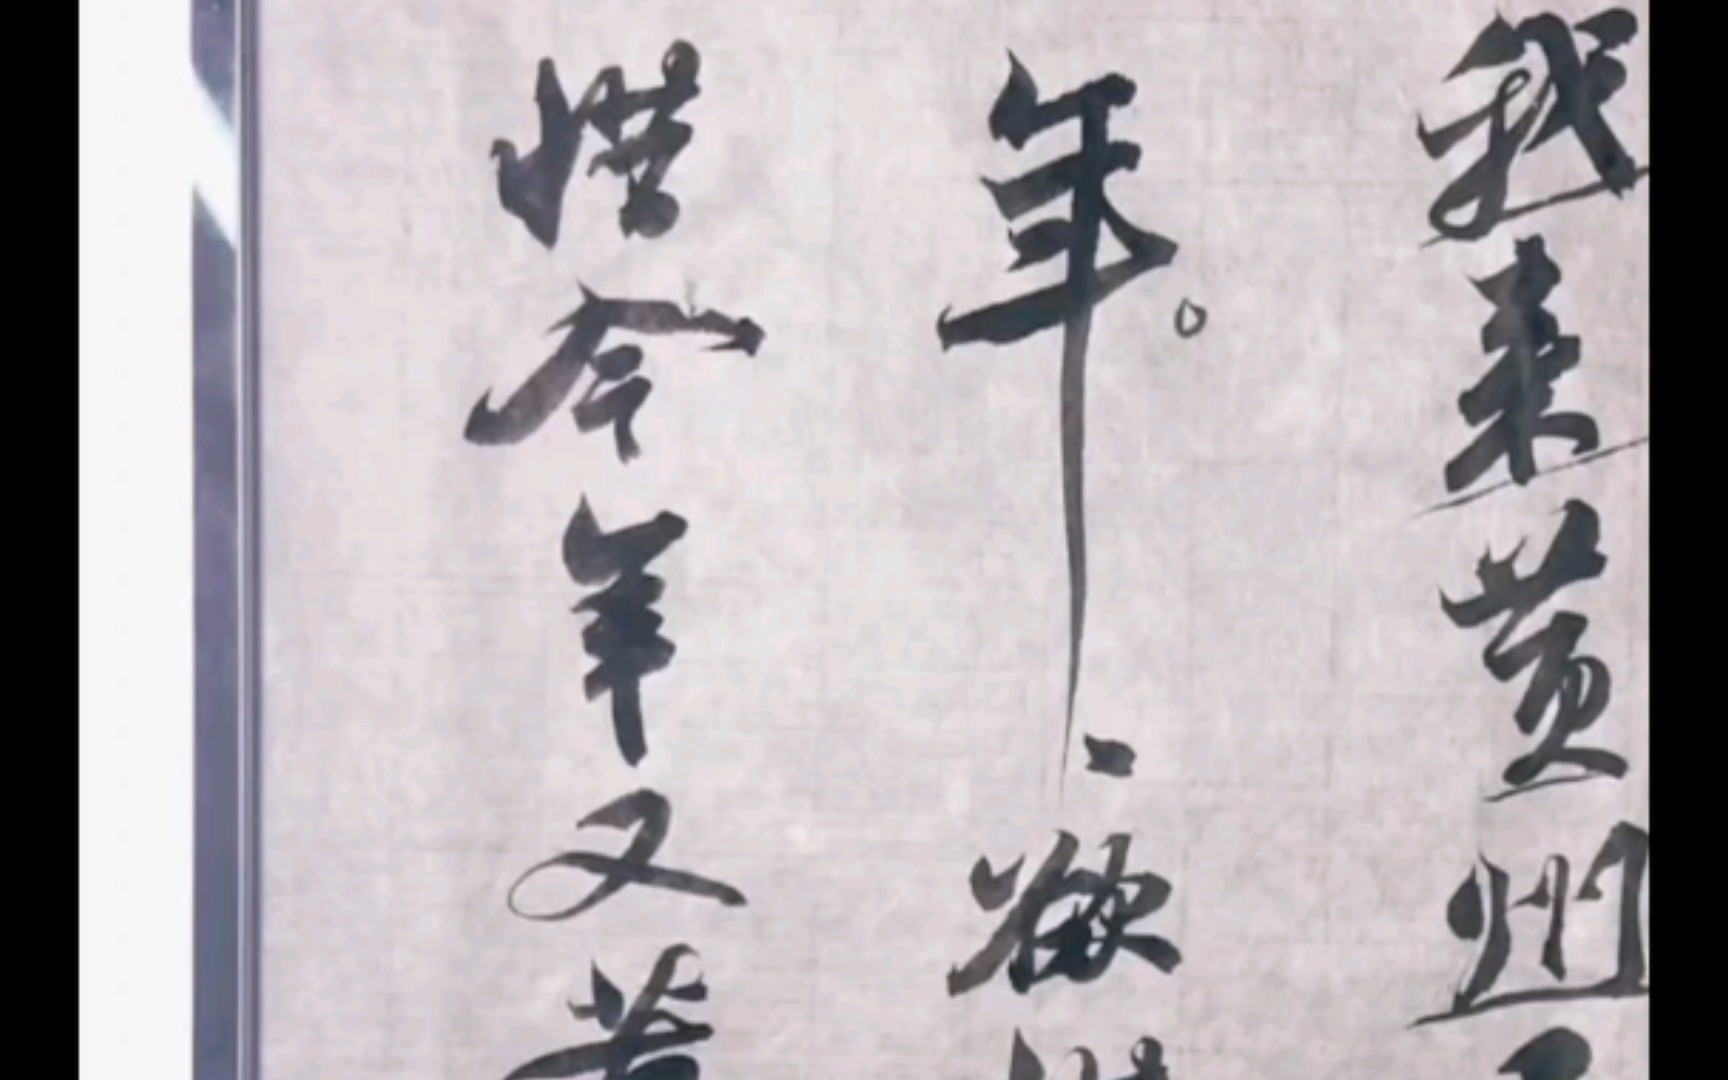 我来黄州
年。欲惜
惜今年又苦